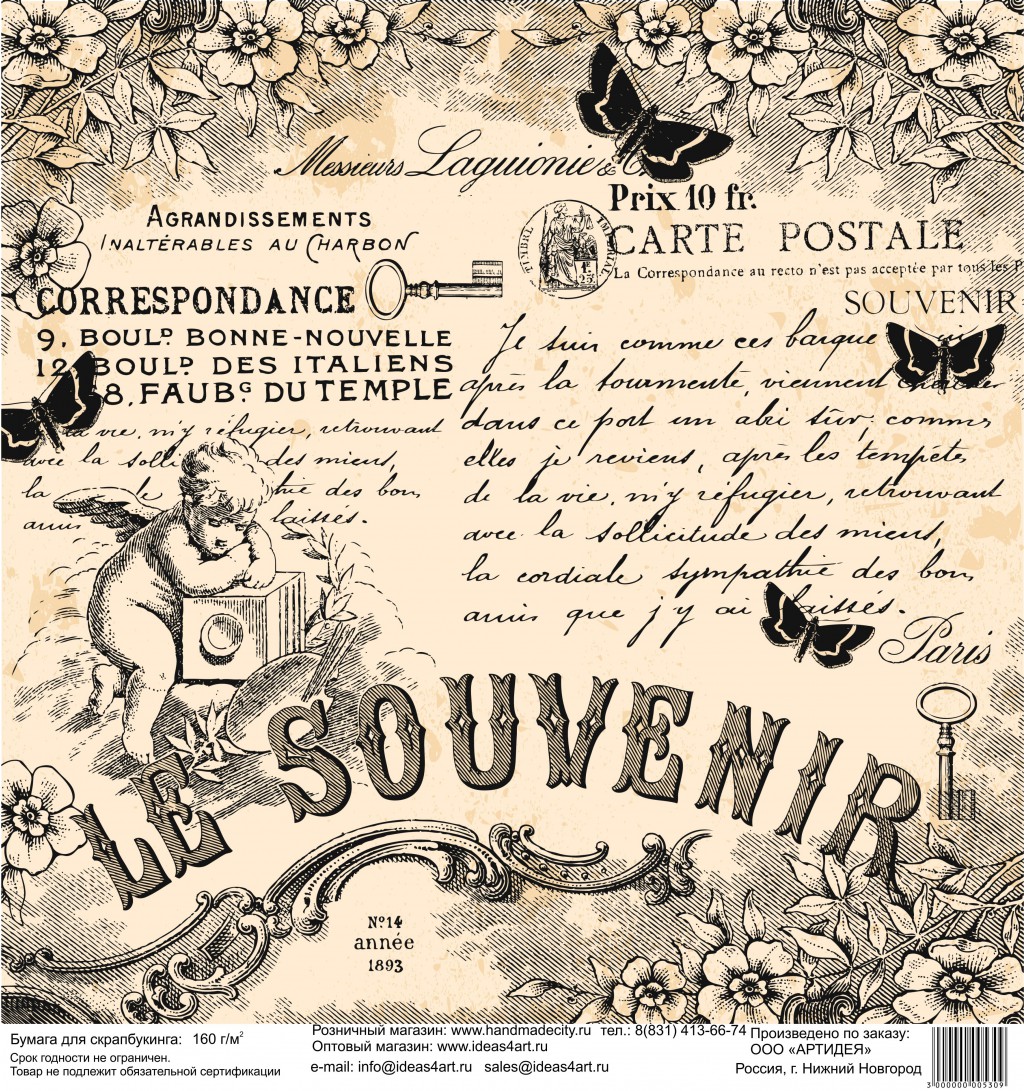 Messieurs Laguionie & C
Prix 10 fr.
AGRANDISSEMENTS
INALTÉRABLES AU CHARBON
TIMBRE IMPERIAL
CARTE POSTALE
La Correspondance au recto n'est pas acceptée par tous les P
SOUVENIR
CORRESPONDANCE
9, BOULD BONNE-NOUVELLE
12 BOULD DES ITALIENS
8, FAUBG DU TEMPLE
la vie, m'y réfugier, retrouvant
avec la solli des miens,
la le thie des bons
amis laissés.
Je suis comme ces barques
après la tourmente, viennent chercher
dans ce port un abri sûr; comme
elles je reviens, après les tempêtes
de la vie, m'y réfugier, retrouvant
avec la sollicitude des miens,
la cordiale sympathie des bons
amis que j'y ai laissés.
Paris
LE SOUVENIR
No 14
année
1893
Бумага для скрапбукинга: 160 г/м²
Срок годности не ограничен.
Товар не подлежит обязательной сертификации
Розничный магазин: www.handmadecity.ru тел.: 8(831) 413-66-74
Оптовый магазин: www.ideas4art.ru
e-mail: info@ideas4art.ru sales@ideas4art.ru
Произведено по заказу:
ООО «АРТИДЕЯ»
Россия, г. Нижний Новгород
3 000000 005309